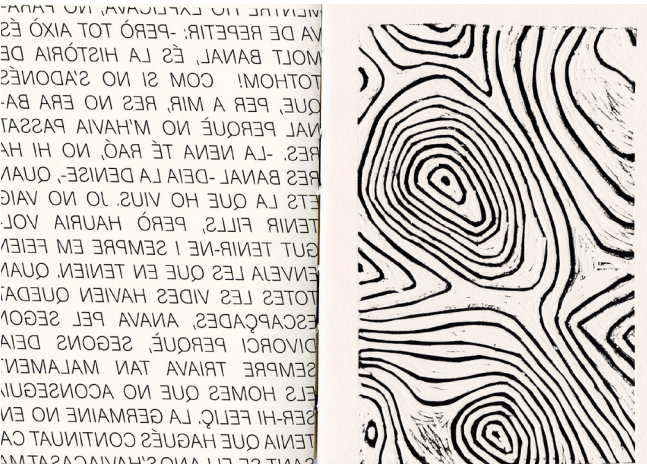 MENTRE HO EXPLICAVA, NO PARA-
VA DE REPETIR: -PERÒ TOT AIXÒ ÉS
MOLT BANAL, ÉS LA HISTÒRIA DE
TOTHOM! COM SI NO S'ADONÉS
QUE, PER A MIR, RES NO ERA BA-
NAL PERQUÈ NO M'HAVIA PASSAT
RES. -LA NENA TÉ RAÓ, NO HI HA
RES BANAL -DEIA LA DENISE-, QUAN
ETS LA QUE HO VIUS. JO NO VAIG
TENIR FILLS, PERÒ HAURIA VOL-
GUT TENIR-NE I SEMPRE EM FEIEN
ENVEJA LES QUE EN TENIEN. QUAN
TOTES LES VIDES HAVIEN QUEDAT
ESCAPÇADES, ANAVA PEL SEGON
DIVORCI PERQUÈ, SEGONS DEIA
SEMPRE TRIAVA TAN MALAMENT
ELS HOMES QUE NO ACONSEGUIA
SER-HI FELIÇ. LA GERMAINE NO EN
TENIA QUE HAGUÉS CONTINUAT CA